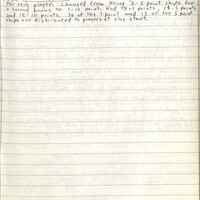 for each player. Changed from having 2-5 point chips for
a second bonus up 1-10 points. Had 78-1 points, 28-5 points
and 18-10 points. 36 of the 1 point and 12 of the 5 point
chips are distributed to players at the start.